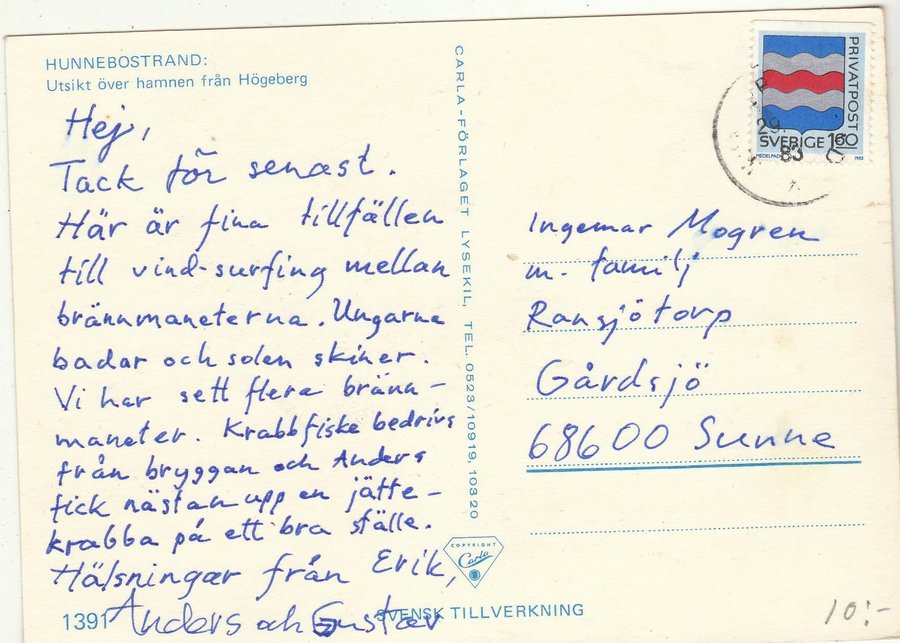 HUNNEBOSTRAND:
Utsikt över hamnen från Högeberg
Hej,
Tack för senast.
Här är fina tillfällen
till vind-surfing mellan
brännmaneterna. Ungarna
badar och solen skiner.
Vi har sett flera bränn-
maneter. Krabbfiske bedrivs
från bryggan och Anders
fick nästan upp en jätte-
krabba på ett bra ställe.
Hälsningar från Erik,
Anders och Gustav
1391
SVENSK TILLVERKNING
CARLA-FÖRLAGET LYSEKIL, TEL. 0523/10919, 10320
COPYRIGHT
Carla
PRIVATPOST
SVERIGE 160
MEDELPAD
1983
29.
83
Ingemar Mogren
m. familj
Ransjötorp
Gårdsjö
68600 Sunne
10:-